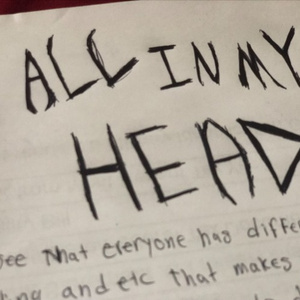 ALL IN MY
HEAD
see that everyone has differe
ing and etc that makes